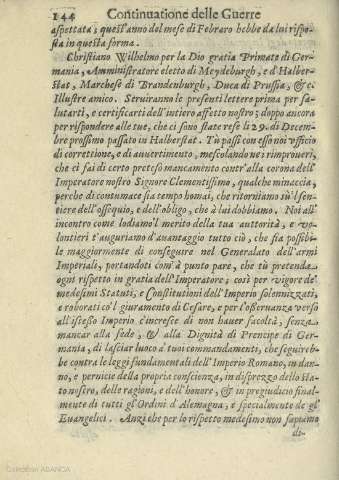 144 Continuatione delle Guerre
aspettata; quest'anno del mese di Febraro hebbe da lui rispo-
sta in questa forma.
Christiano Wilhelmo per la Dio gratia Primate di Ger-
mania, Amministratore eletto di Meydeburgh, e d'Halber-
stat, Marchese di Brandenburgh, Duca di Prussia, & c.
Illustre amico. Seruiranno le presenti lettere prima per sa-
lutarti, e certificarti dell'intiero affetto nostro; doppo ancora
per rispondere alle tue, che ci sono state rese li 29. di Decem-
bre prossimo passato in Halberstat. Tù passi con esso noi vfficio
di correttione, e di auuertimento, mescolando ne i rimproueri,
che ci fai di certo preteso mancamento contr'alla corona dell'
Imperatore nostro Signore Clementissimo, qualche minaccia,
perche di contumace sia tempo homai, che ritorniamo sù'l sen-
tiere dell'ossequio, e dell'obligo, che à lui dobbiamo. Noi all'
incontro come lodiamo'l merito della tua auttorità, e vo-
lontieri t'auguriamo d'auantaggio tutto ciò, che sia possibi-
le maggiormente di conseguire nel Generalato dell'armi
Imperiali, portandoti com'à punto pare, che tù pretenda
ogni rispetto in gratia dell'Imperatore; così per vigore de'
medesimi Statuti, e Constitutioni dell'Imperio solennizzati,
e roborati co'l giuramento di Cesare, e per l'osseruanza verso
all'istesso Imperio c'incresce di non hauer facoltà, senza
mancar alla fede, & alla Dignità di Prencipe di Ger-
mania, di lasciar luoco à tuoi commandamenti, che seguireb-
be contra le leggi fundamentali dell'Imperio Romano, in dan-
no, e pernicie della propria conscienza, in disprezzo dello sta-
to nostro, delle ragioni, e dell'honore, & in pregiudicio final-
mente di tutti gl'Ordini d'Alemagna, e specialmente de gl'
Euangelici. Anzi che per lo rispetto medesimo non sapiamo
Colección ABANCA